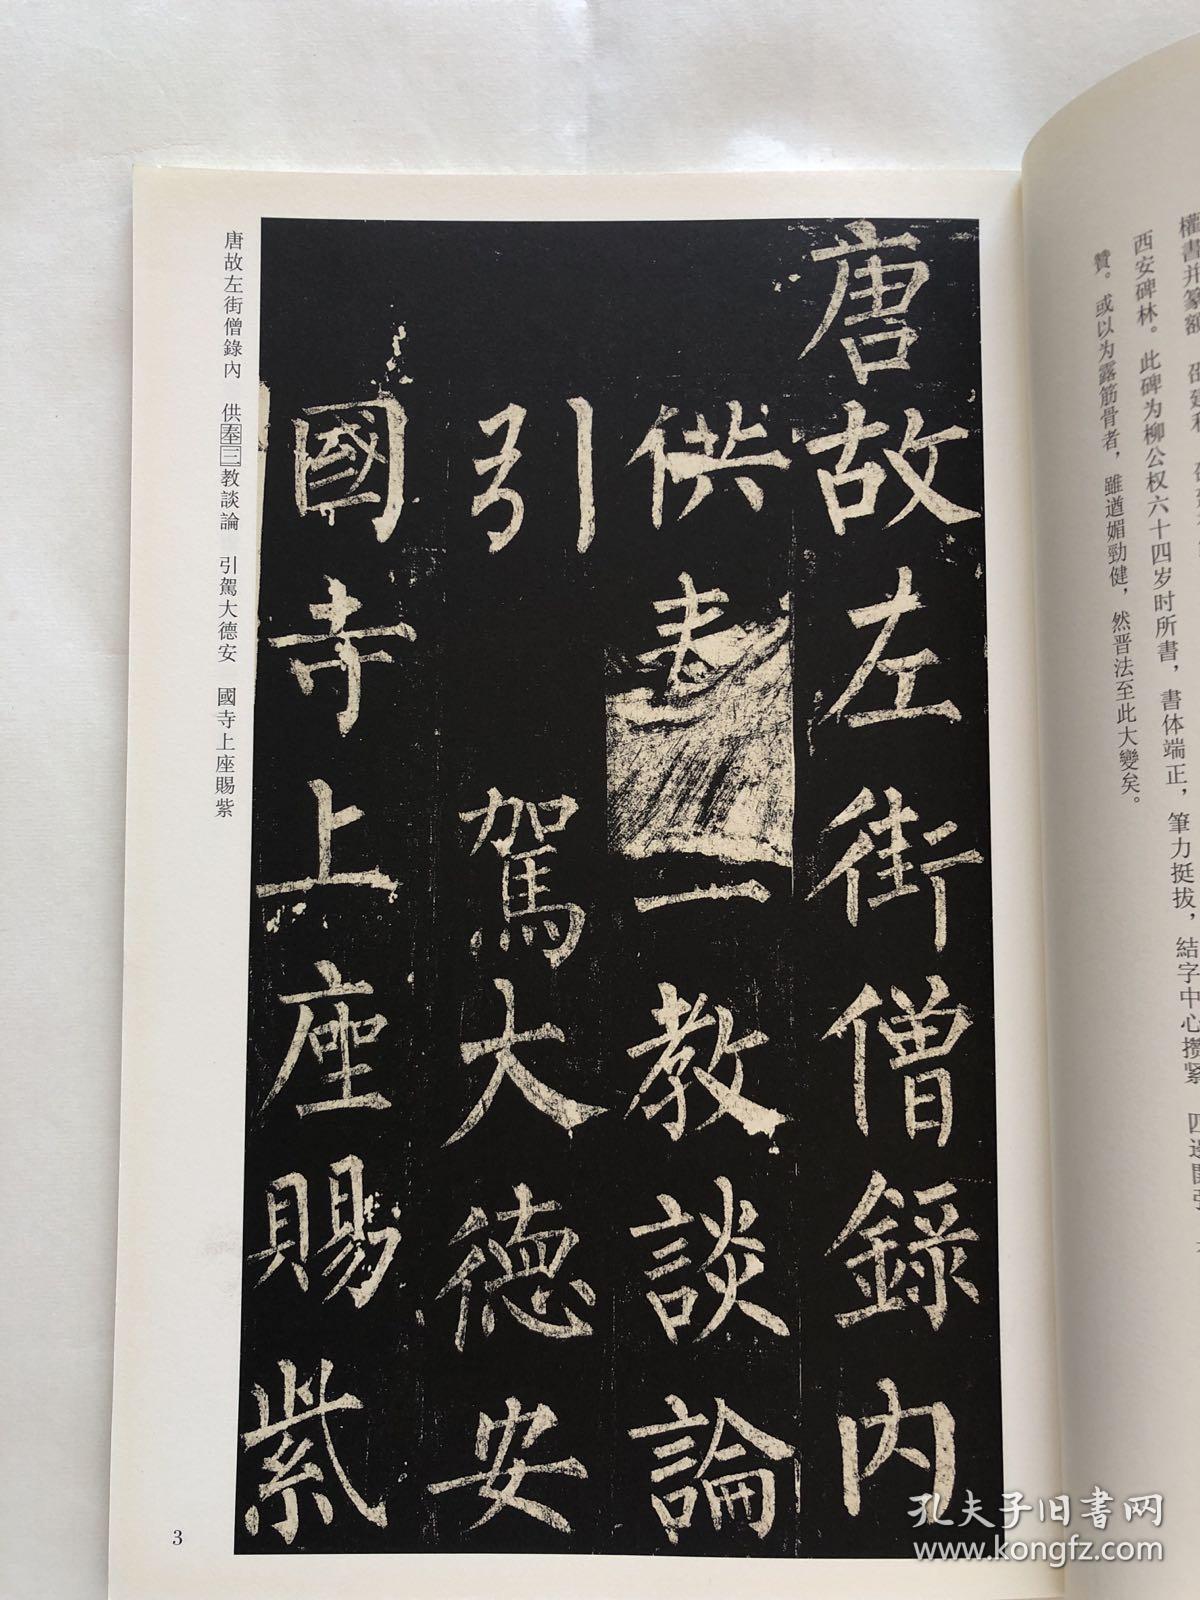 西安碑林。此碑为柳公权六十四岁时所書，書体端正，筆力挺拔，結字中心攢紧
贊。或以为露筋骨者，雖遒媚勁健，然晋法至此大變矣。
唐故左街僧錄内
供奉一教談論
引駕大德安
國寺上座賜紫
唐故左街僧錄内 供奉三教談論 引駕大德安 國寺上座賜紫
3
孔夫子旧書网
www.kongfz.com